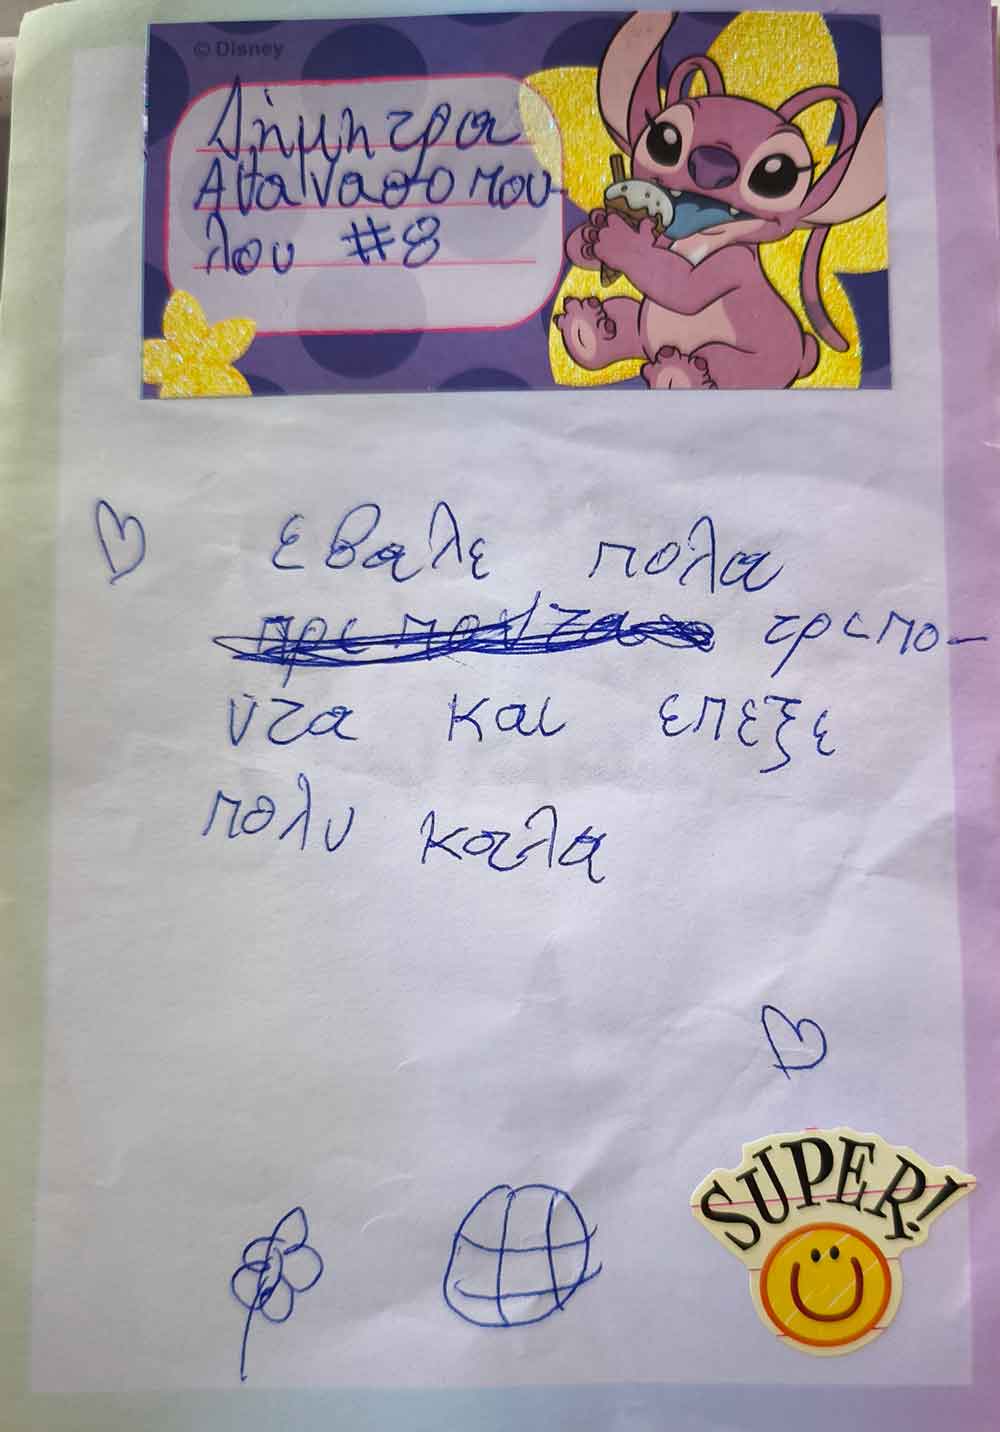 © Disney
Δήμητρα
Αθανασοπου-
λου #8
εβαλε πολα
τριπο-
ντα και επεξε
πολυ καλα
SUPER!